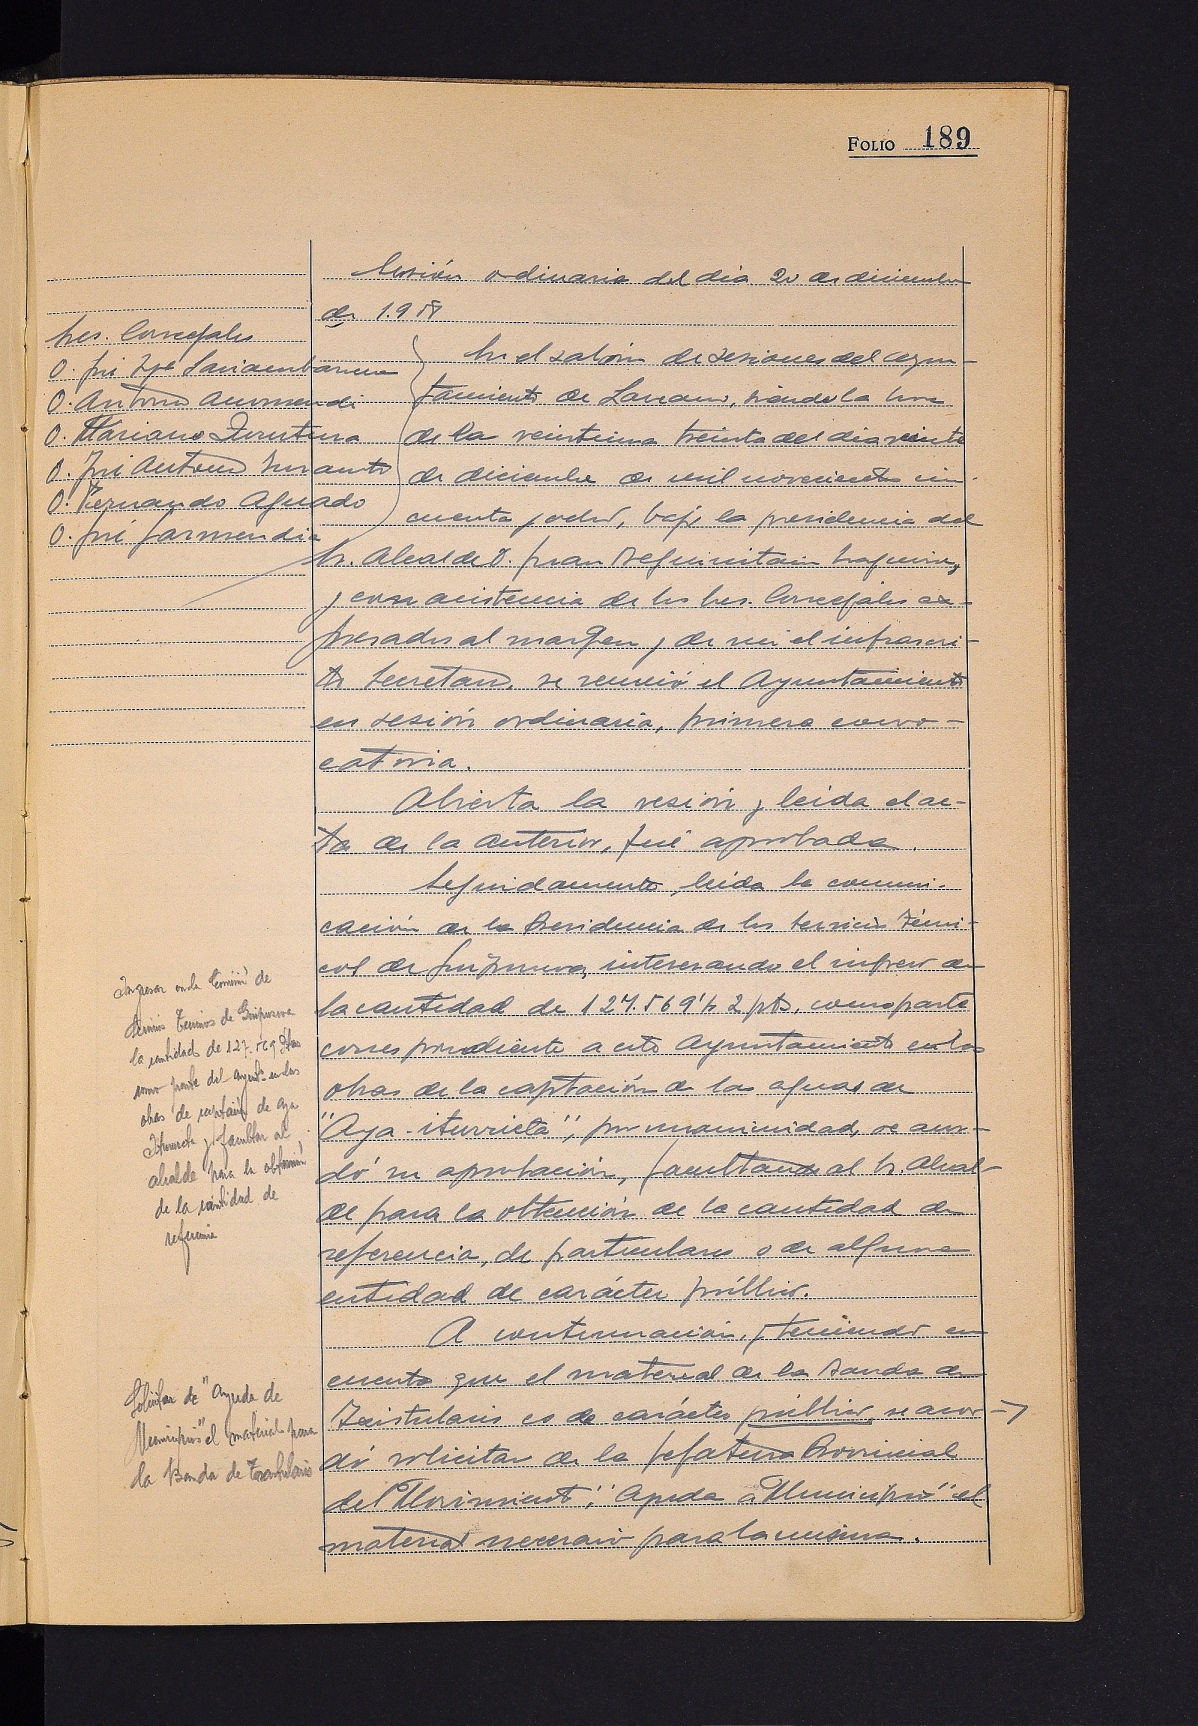 FOLIO 189
Sesión ordinaria del dia 20 de diciembre
de 1.958
Sres. Concejales
D. José
D. Antonio
D. Mariano
D. José Antonio
D. Fernando Aguado
D. José Garmendia
En el salón de sesiones del ayun-
tamiento de Lazcano, siendo la hora
de la veintiuna treinta del dia veinte
de diciembre de mil novecientos cin-
cuenta y ocho, bajo la presidencia del
Sr. Alcalde D. Juan
y con asistencia de los Sres. Concejales ex-
presados al margen y de mi el infrascri-
to Secretario, se reunió el Ayuntamiento
en sesión ordinaria, primera convo-
catoria.
Abierta la sesión y leida el ac-
ta de la anterior, fué aprobada.
Seguidamente, leida la comuni-
cación de la Presidencia de los Servicios Técni-
cos de Guipuzcoa, interesando el ingreso de
la cantidad de 127.569' pts, como parte
correspondiente a este Ayuntamiento en las
obras de la captación de las aguas de
"Aya-iturrieta", por unanimidad, se acor-
dó su aprobación, facultando al Sr. Alcal-
de para la obtención de la cantidad de
referencia, de particulares o de alguna
entidad de carácter público.
A continuación, y teniendo en
cuenta que el material de la Banda de
Txistularis es de carácter público, se acor-
dó solicitar de la Jefatura Provincial
del Movimiento, "Ayuda a Municipios" el
material necesario para la misma.
Ingresar en la Comisión de
Servicios Tecnicos de Guipuzcoa
la cantidad de 127.569 Ptas
como parte del Ayunt.º en las
obras de captación de Aya
Iturrieta y facultar al
alcalde para la obtención
de la cantidad de
referencia
Solicitar de "Ayuda de
Municipios" el material para
la Banda de Txistularis